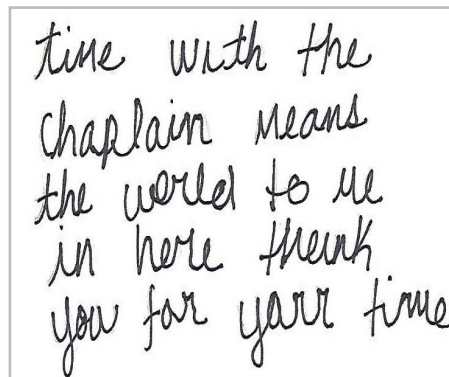 time with the
chaplain means
the world to me
in here thank
you for your time